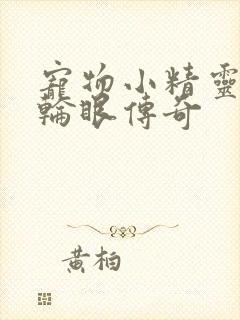 寵物小精靈
輪眼傳奇
黃柏